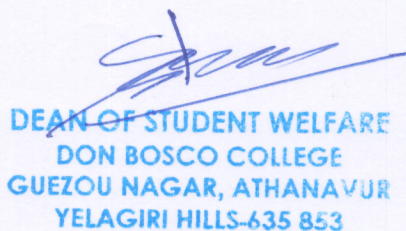 DEAN OF STUDENT WELFARE
DON BOSCO COLLEGE
GUEZOU NAGAR, ATHANAVUR
YELAGIRI HILLS-635 853